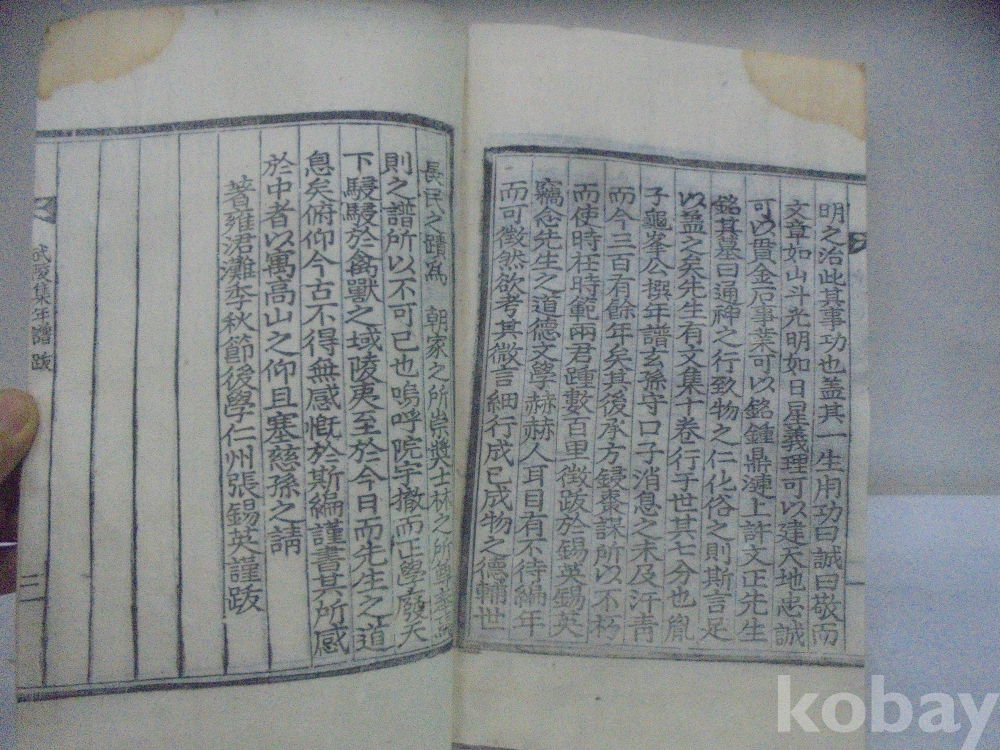 明之治此其事功也盖其一生用功曰誠曰敬而
文章如山斗光明如日星義理可以建天地忠誠
可以貫金石事業可以銘鍾鼎漣上許文正先生
銘其墓曰通神之行致物之仁化俗之則斯言足
以盡之矣先生有文集十卷行于世其七分也胤
子龜峯公撰年譜玄孫守口子消息之未及汗靑
而今三百有餘年矣其後承方鋟棗謀所以不朽
而使時在時範兩君踵數百里徵跋於錫英錫英
竊念先生之道德文學赫赫人耳目有不待編年
而可徵然欲考其微言細行成己成物之德輔世
長民之蹟爲 朝家之所崇奬士林之所尊
則之譜所以不可已也嗚呼院宇撤而正學廢天
下駸駸於禽獸之域陵夷至於今日而先生之道
息矣俯仰今古不得無感慨於斯編謹書其所感
於中者以寓高山之仰且塞慈孫之請
著雍涒灘季秋節後學仁州張錫英謹跋
武陵集年譜 跋
二
kobay